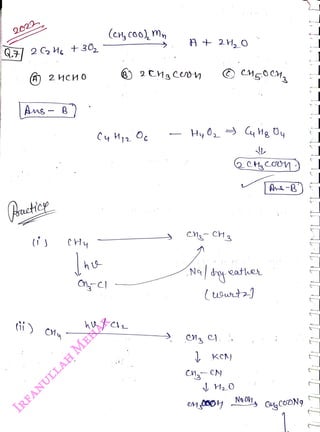 2022
(CH3COO)2 Mn
Q.7 2 C2H6 + 3O2 → A + 2H2O
Ⓐ 2 HCHO Ⓑ 2 CH3COOH Ⓒ CH5OCH3
Ans - B
C4 H12 O6 — H4O2 ⇒ C4H8O4
2 CH3COOH
Ans-B
Practice
(i) CH4 → CH3-CH3
hυ
CH3-Cl
Na / dry eather
(Wurtz)
(ii) CH4 hυ / Cl2 → CH3 Cl
↓ KCN
CH3-CN
↓ H2O
CH3COOH NaOH → CH3COONa
IRFANULLAH MEHAR